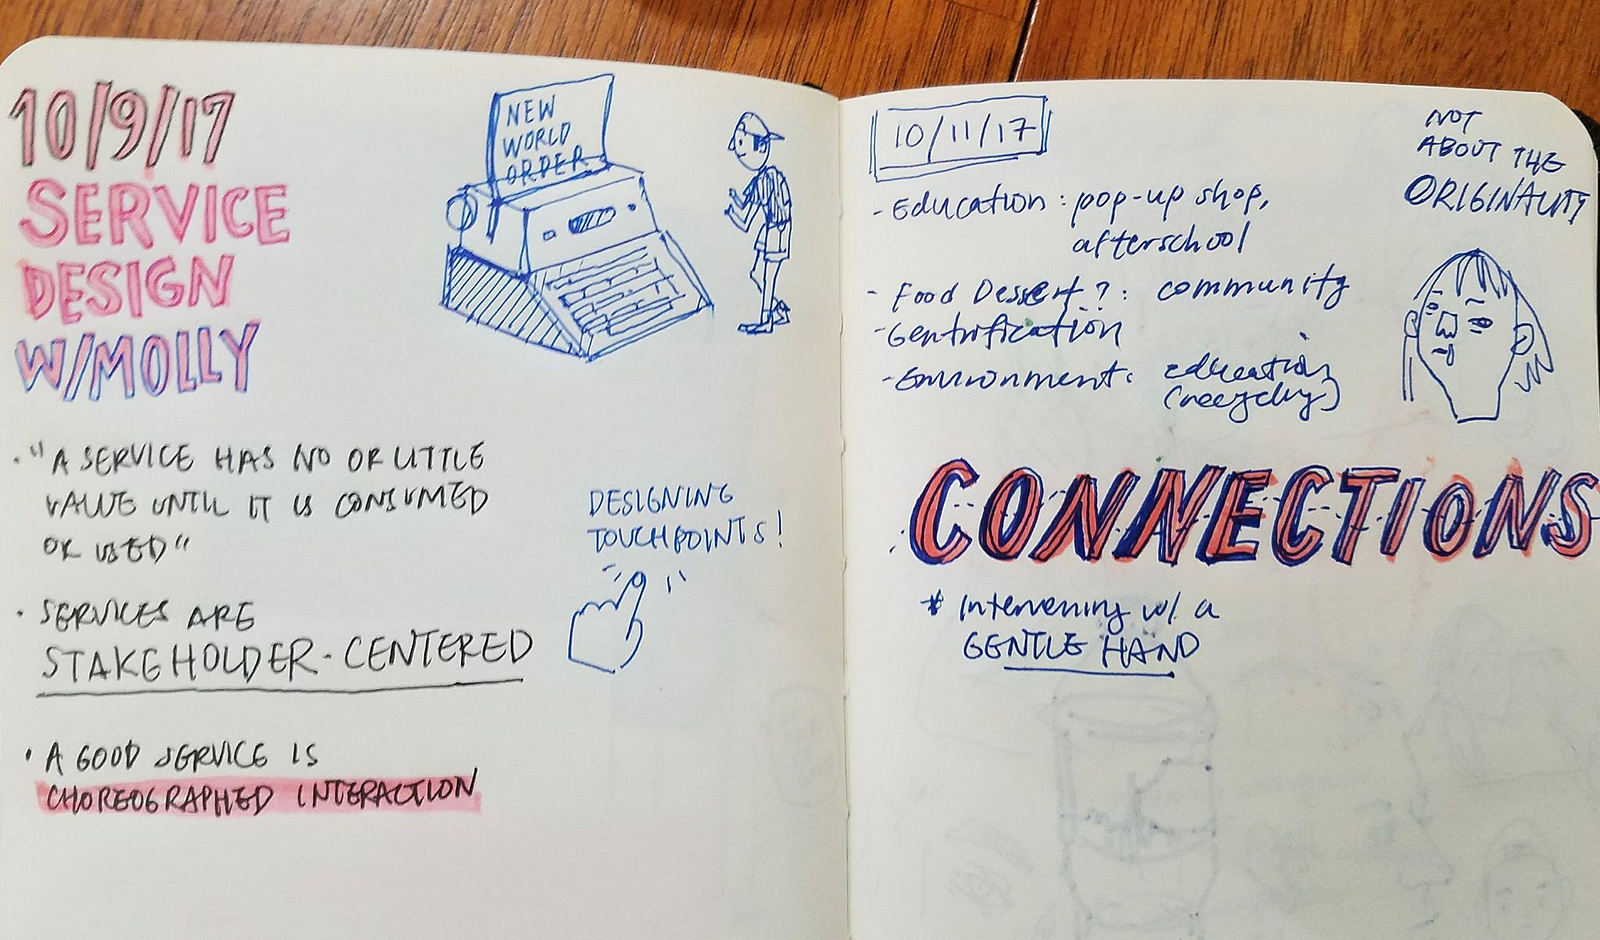 10/9/17
SERVICE
DESIGN
W/MOLLY
NEW
WORLD
ORDER
· "A SERVICE HAS NO OR LITTLE
VALUE UNTIL IT IS CONSUMED
OR USED"
DESIGNING
TOUCHPOINTS!
· SERVICES ARE
STAKEHOLDER-CENTERED
· A GOOD SERVICE IS
CHOREOGRAPHED INTERACTION
10/11/17
NOT
ABOUT THE
ORIGINALITY
- Education : pop-up shop,
afterschool
- Food Dessert? : community
- Gentrification
- Environment: education
(recycling)
CONNECTIONS
* Intervening w/ a
GENTLE HAND